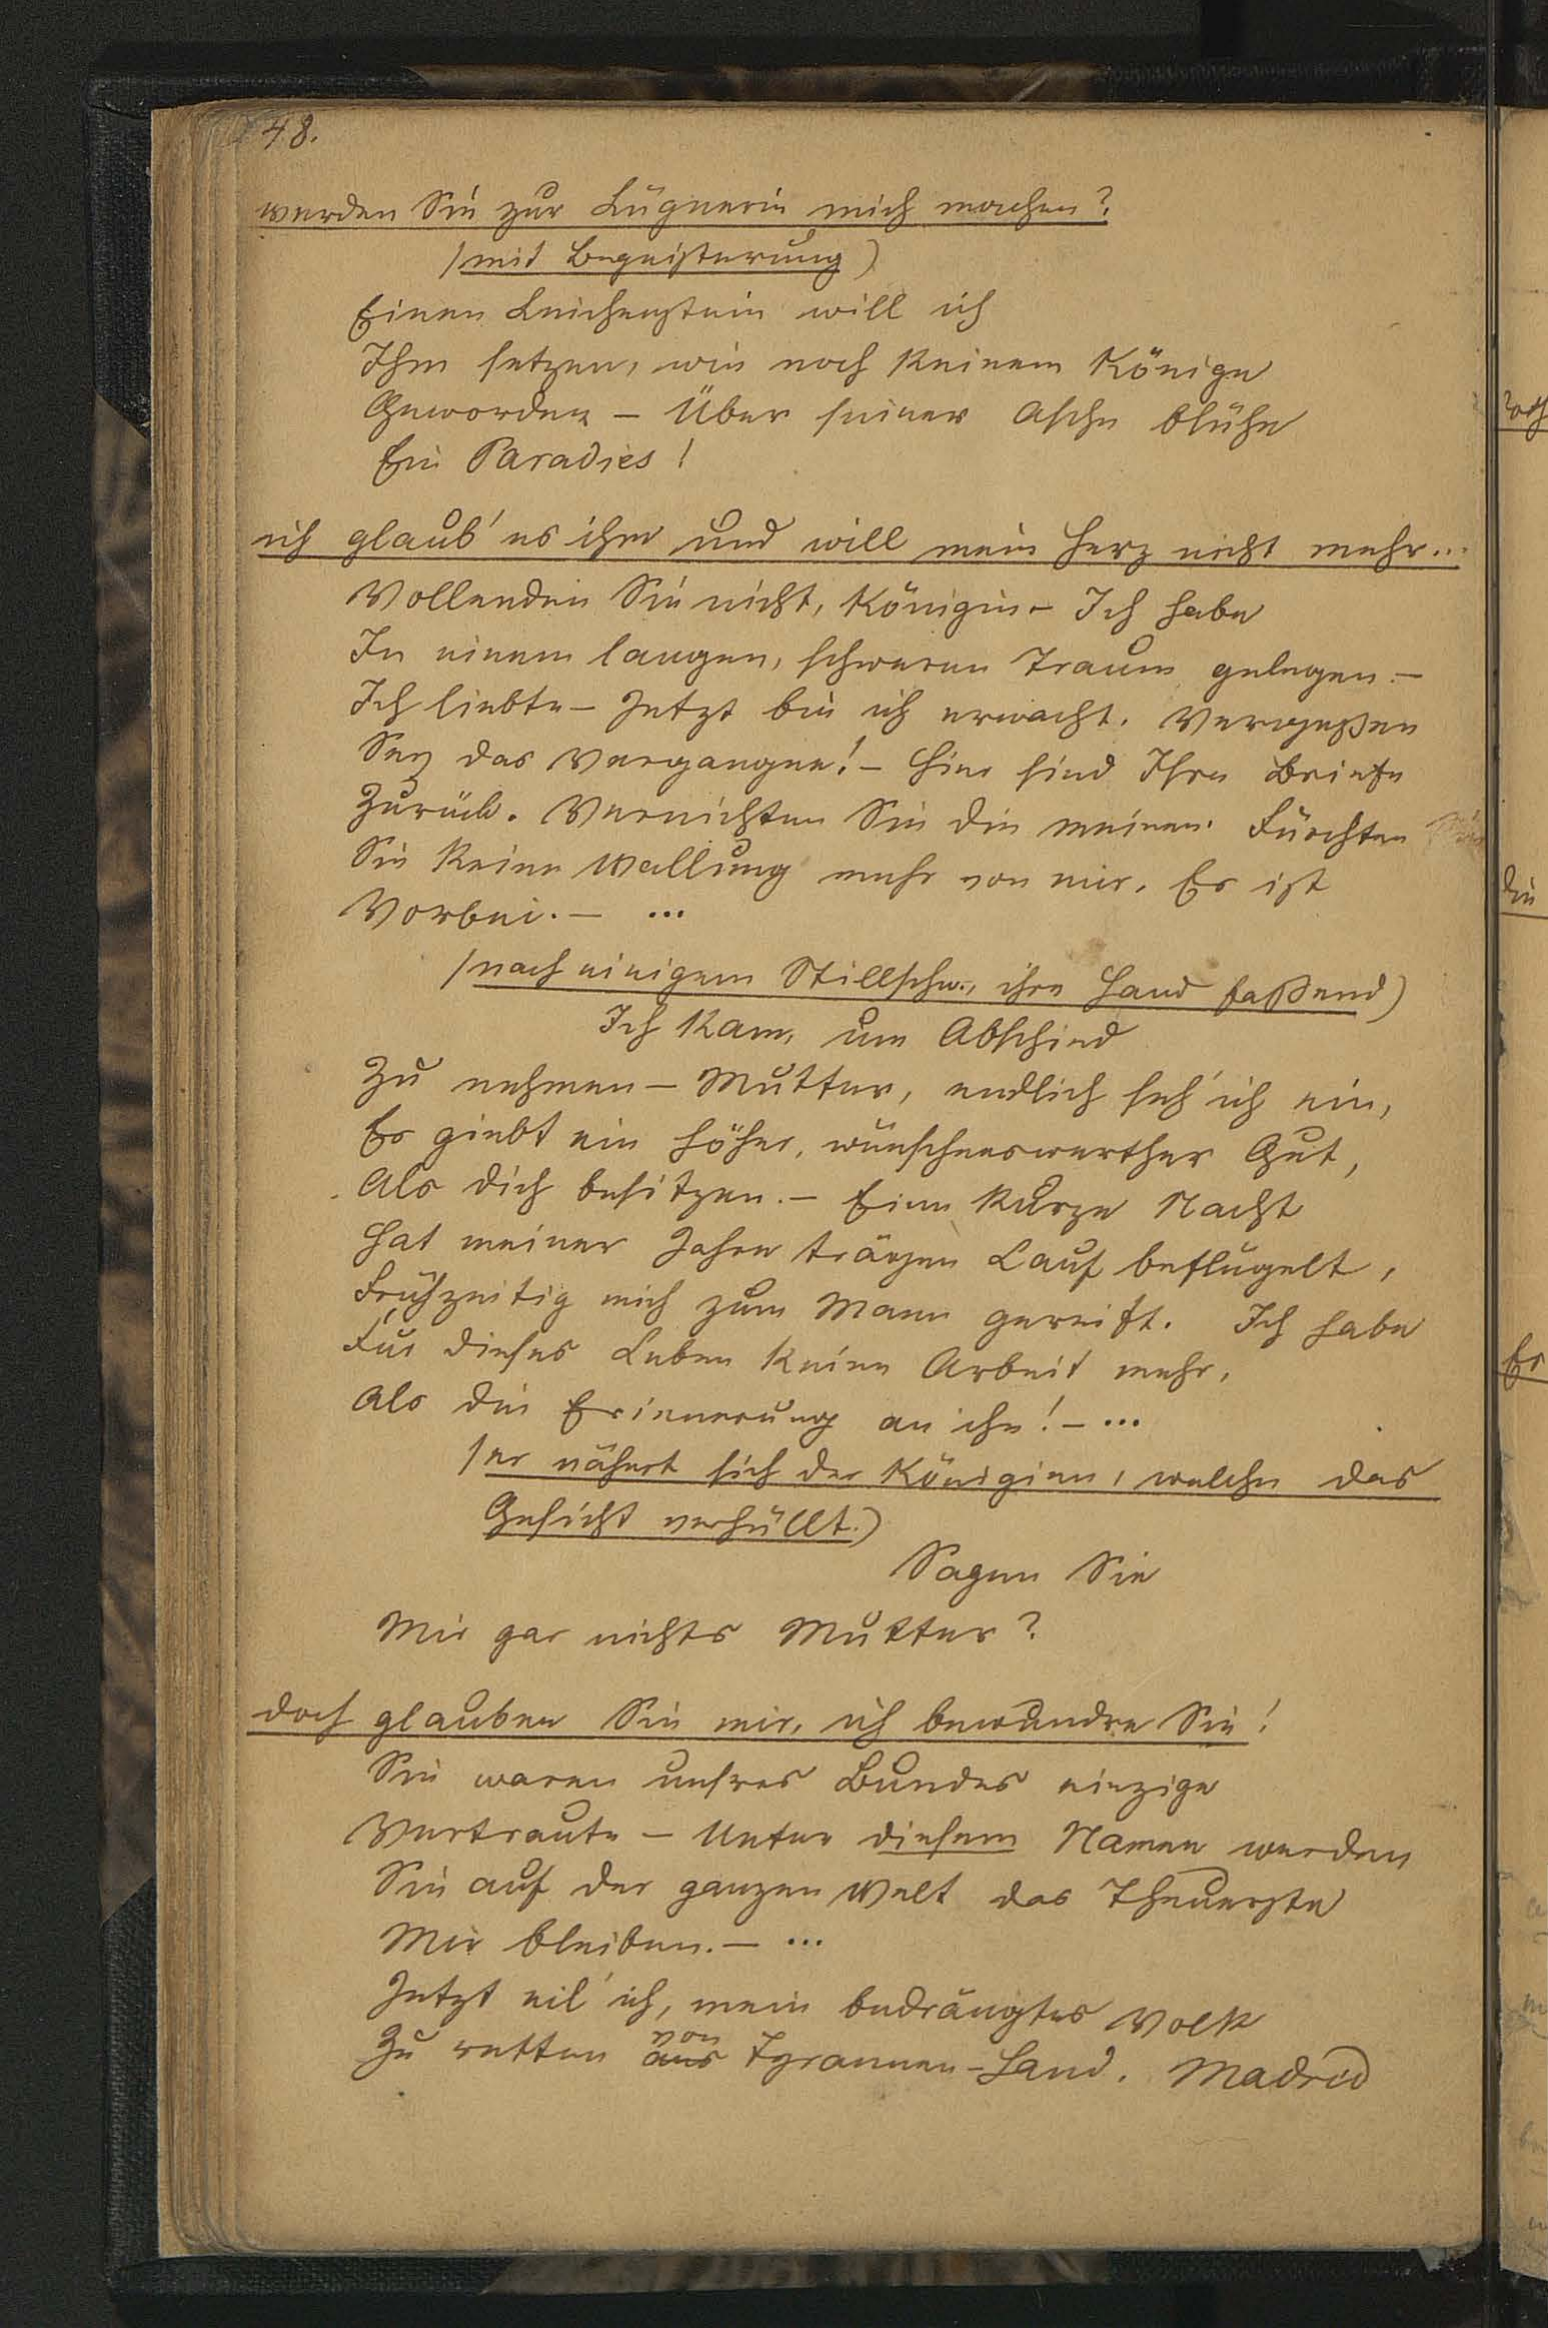 48.
werden Sie zur Lügnerin mich machen?
(mit Begeisterung)
Einen Leichenstein will ich
Ihm setzen, wie noch keinem Könige
Geworden – Über seiner Asche blühe
Ein Paradies!
ich glaub' es ihm und will mein Herz nicht mehr...
Vollenden Sie nicht, Königin – Ich habe
In einem langen, schweren Traum gelegen. –
Ich liebte – Jetzt bin ich erwacht. Vergeßen
Sey das Vergangne! – Hier sind Ihre Briefe
Zurück. Vernichten Sie die meinen. Fürchten
Sie keine Wallung mehr von mir. Es ist
Vorbei. – ...
(nach einigem Stillschw., ihre Hand faßend)
Ich kam, um Abschied
Zu nehmen – Mutter, endlich seh' ich ein,
Es giebt ein höher, wünschenswerther Gut,
Als dich besitzen. – Eine kurze Nacht
Hat meiner Jahre trägen Lauf beflügelt,
Frühzeitig mich zum Mann gereift. Ich habe
Für dieses Leben keine Arbeit mehr,
Als die Erinnerung an ihn! – ...
(er nähert sich der Königinn, welche das
Gesicht verhüllt.)
Sagen Sie
Mir gar nichts Mutter?
doch glauben Sie mir, ich bewundre Sie!
Sie waren unsres Bundes einzige
Vertraute – Unter diesem Namen werden
Sie auf der ganzen Welt das Theuerste
Mir bleiben. – ...
Jetzt eil' ich, mein bedrängtes Volk
von
Zu retten aus Tyrannen-Hand. Madrid